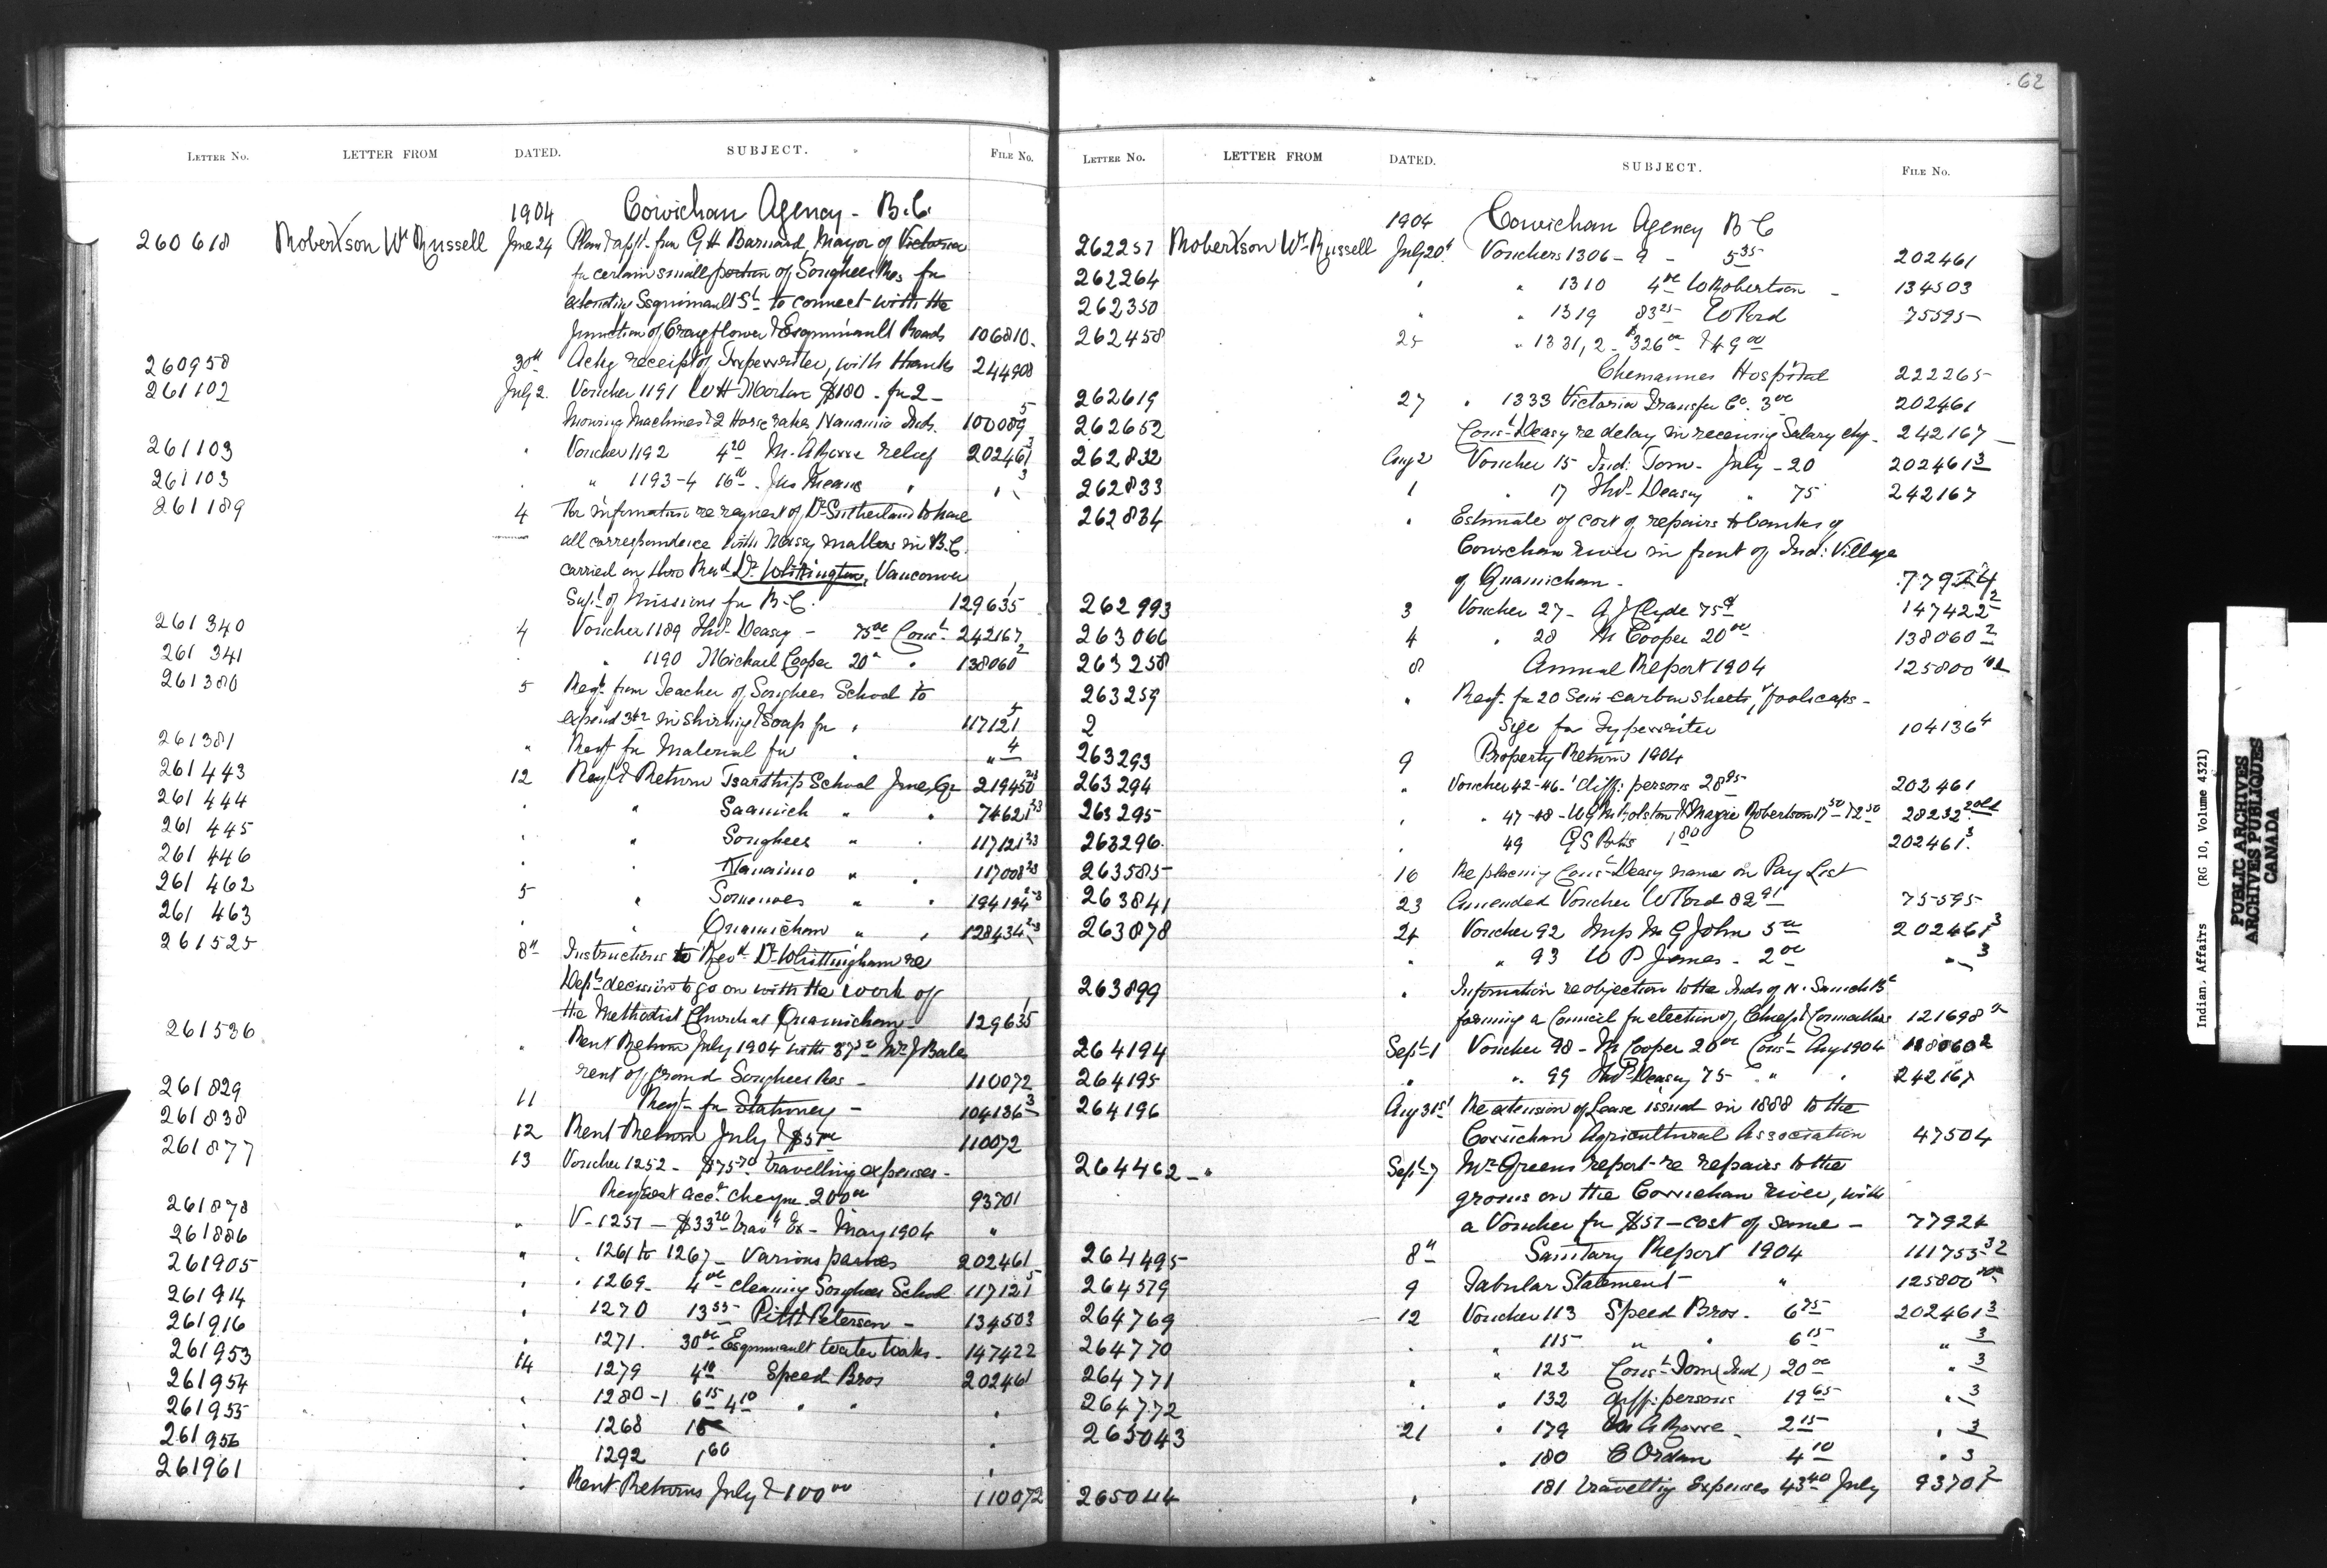 62
LETTER No. LETTER FROM DATED. SUBJECT. FILE No.
1904 Cowichan Agency - B.C.
260618 Robertson Wm Russell June 24 Plan & appl. for G H Barnard, Mayor of Victoria
for certain small portion of Songhees Res for
extending Esquimault St to connect with the
junction of Craigflower & Esquimault Roads 106810.
260958 30th Ackg receipt of Typewriter, with thanks 244908
261102 July 2. Voucher 1191 W H Morton $180 - for 2 -
Mowing Machines & 2 Horse rakes, Nanaimo Inds. 100089 5
261103 " Voucher 1192 4 20 M. A Rowe relief 202461 3
261103 " " 1193-4 16 00 Jns Means " " 3
261189 4 For information re request of Dr Sutherland to have
all correspondence with Messy matters in B.C.
carried on thro Revd Dr Whittington, Vancouver
Supt of Missions for B.C. 129635 1
261340 4 Voucher 1189 Thos Deasy - 75 00 Const 242167
261341 " " 1190 Michael Cooper 20 " " 138060 2
261380 5 Reqt from Teacher of Songhees School to
expend 3 42 in Shirting & Soap for " 117121 5
261381 " Reqt for Material for " " 4
261443 12 Reqt & Return Tsartlip School June Qr 219450 2-3
261444 " " Saanich " " 74621 2-3
261445 " " Songhees " " 117121 2-3
261446 " " Nanaimo " " 117008 2-3
261462 5 " Somenos " " 194194 2-3
261463 " " Quamichan " " 128434 2-3
261525 8th Instructions to Revd Dr Whittingham re
Dept decision to go on with the work of
the Methodist Church at Quamichan 129635 1
261536 " Rent Return July 1904 with 87 50 Mr J Bale
rent of ground Songhees Res - 110072
261829 11 Reqt - for Stationery - 104136 3
261838 12 Rent Return July & $5 00 110072
261877 13 Voucher 1252 - $75 70 travelling expenses -
Request acct cheque 200 00 93701
261878 " V - 1251 - $33 20 Travg Ex - May 1904 "
261886 " " 1261 to 1267 - Various parties 202461
261905 " " 1269 - 4 00 cleaning Songhees School 117121 5
261914 " 1270 13 55 Pitt & Peterson - 134503
261916 " 1271. 30 00 Esquimault Water Works - 147422
261953 14 1279 4 10 Speed Bros 202461
261954 " 1280-1 6 15 4 10 " " "
261955 " 1268 15
261956 " 1292 1 60 "
261961 " Rent Returns July & 100 00 110072
LETTER No. LETTER FROM DATED. SUBJECT. FILE No.
1904 Cowichan Agency B C
262257 Robertson Wm Russell July 20th Vouchers 1306 - 9 - 5 35 202461
262264 " " 1310 4 00 W Robertson - 134503
262350 " " 1319 83 25 W Ford 75595
262458 25 " 1331, 2 - $326 00 & 49 00
Chemainus Hospital 222265
262619 27 " 1333 Victoria Transfer Co. 3 00 202461
262652 Const Deasy re delay in receiving Salary chq - 242167
262832 Aug 2 Voucher 15 Ind: Tom - July - 20 202461 3
262833 1 " 17 Thos Deasy " 75 242167
262834 " Estimate of cost of repairs to banks of
Cowichan River in front of Ind: Village
of Quamichan - 77924
262993 3 Voucher 27 - A J Clyde 75 147422 2
263066 4 " 28 M Cooper 20 00 138060 2
263258 8 Annual Report 1904 125800
263259 " Reqt for 20 Semi carbon sheets, foolscaps -
2 Size for Typewriter 104136 4
263293 9 Property Return 1904
263294 " Voucher 42-46 - diff: persons 28 95 202461
263295 " " 47-48 - W G McRolston & Magie Robertson 17 50 12 50 28232
263296. " 49 G S Potts 1 80 202461. 3
263585 16 Re placing Const Deasy name on Pay List
263841 23 Amended Voucher W Ford 82 91 75595
263878 24 Voucher 92 M G John 5 00 202461 3
" " 93 W P James - 2 00 " 3
263899 " Information re objection to the Inds of N. Saanich Bd
forming a Council for election of Chief & Councillors 121698
264194 Sept 1 Voucher 98 - M Cooper 20 00 Const Aug 1904 138060 2
264195 " " 99 Thos Deasy 75 - " " 242167
264196 Aug 31st Re extension of Lease issued in 1888 to the
Cowichan Agricultural Association 47504
264462 - " Sept 7 Mr Greens report - re repairs to the
groins on the Cowichan River, with
a Voucher for $51 - cost of same - 77924
264495 8th Sanitary Report 1904 111753
264579 9 Tabular Statement " 125800
264769 12 Voucher 113 Speed Bros. 6 75 202461 3
264770 " " 115 " " 6 15 " 3
264771 " " 122 Const Tom (Ind) 20 00 " 3
264772 " " 132 diff: persons 19 65 " 3
265043 21 " 179 M A Rowe - 2 15 " 3
" 180 C Ordan 4 10 " 3
265044 " 181 travelling Expenses 43 40 July 93701 2
Indian. Affairs (RG 10, Volume 4321)
PUBLIC ARCHIVES
ARCHIVES PUBLIQUES
CANADA